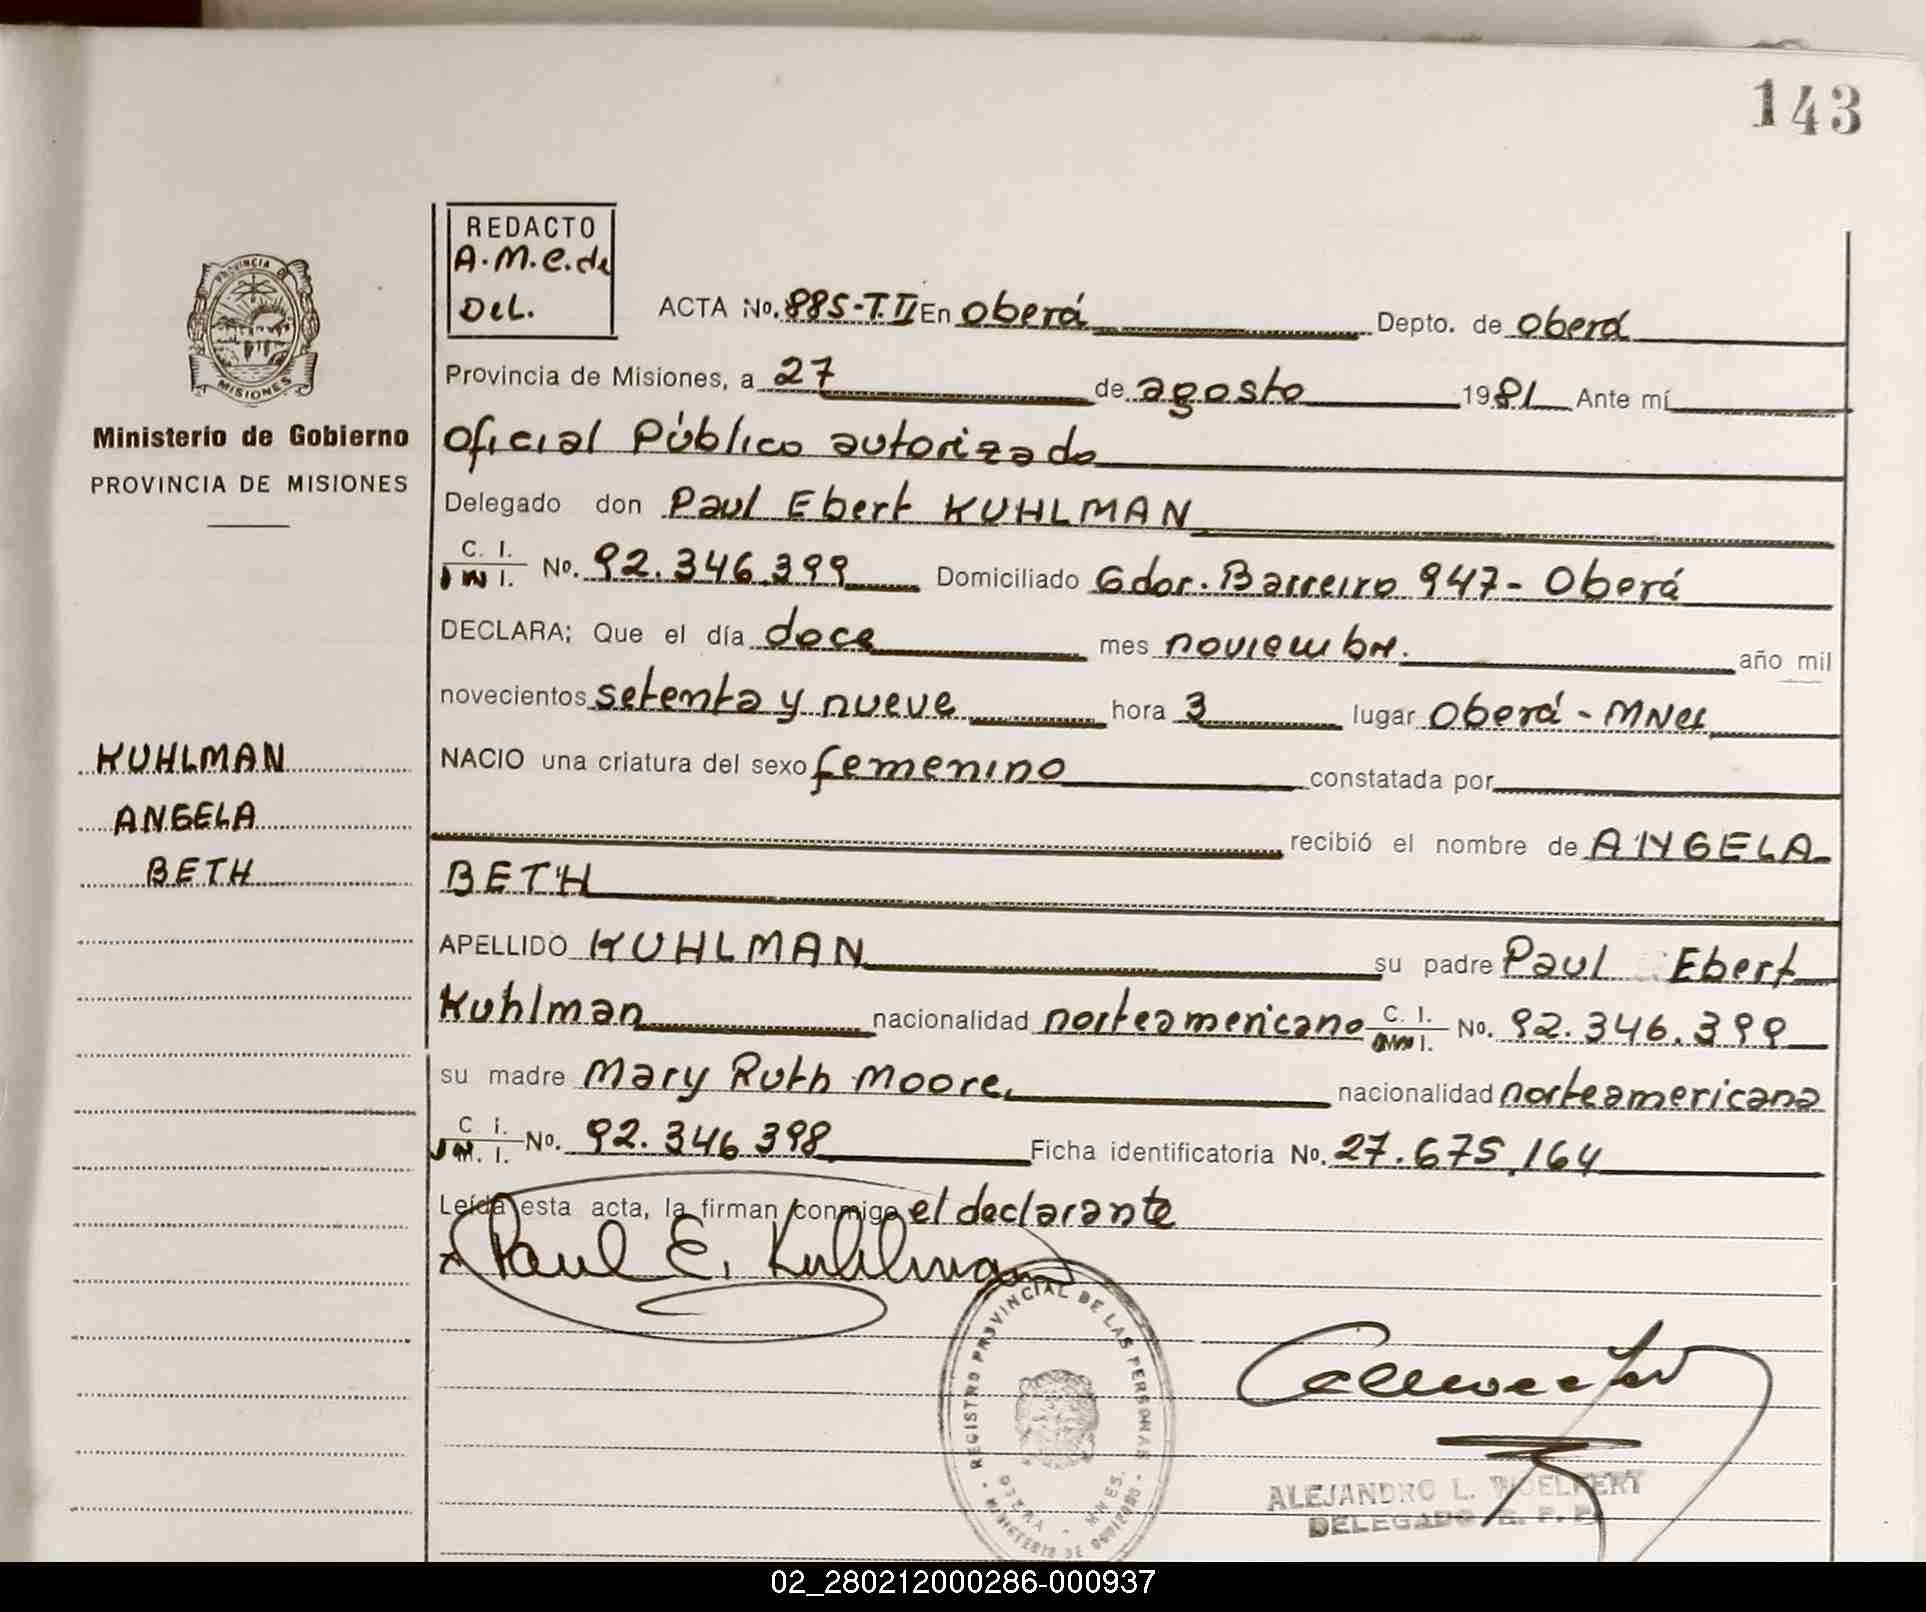 143
REDACTO
A.M.C.de
Del.
PROVINCIA DE
MISIONES
Ministerio de Gobierno
PROVINCIA DE MISIONES
KUHLMAN
ANGELA
BETH
ACTA No. 885-T.II En Oberá Depto. de Oberá
Provincia de Misiones, a 27 de agosto 1981 Ante mí
Oficial Público autorizado
Delegado don Paul Ebert KUHLMAN
C. I. No. 92.346.399 Domiciliado Gdor. Barreiro 947- Oberá
DECLARA; Que el día doce mes noviembre. año mil
novecientos setenta y nueve hora 3 lugar Oberá - MNes
NACIO una criatura del sexo femenino constatada por
recibió el nombre de ANGELA
BETH
APELLIDO KUHLMAN su padre Paul Ebert
Kuhlman nacionalidad norteamericano C. I. No. 92.346.399
su madre Mary Ruth Moore, nacionalidad norteamericana
C. I. No. 92.346 398 Ficha identificatoria No. 27.675.164
Leída esta acta, la firman conmigo el declarante
Paul E. Kuhlman
REGISTRO PROVINCIAL DE LAS PERSONAS
OBERA - MNES.
MINISTERIO DE GOBIERNO
ALEJANDRO L. WOELFERT
DELEGADO
02_280212000286-000937